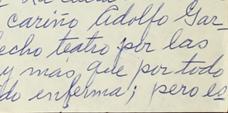 cariño Adolfo Gar-
echo teatro por las
y más que por todo
do enferma; pero es